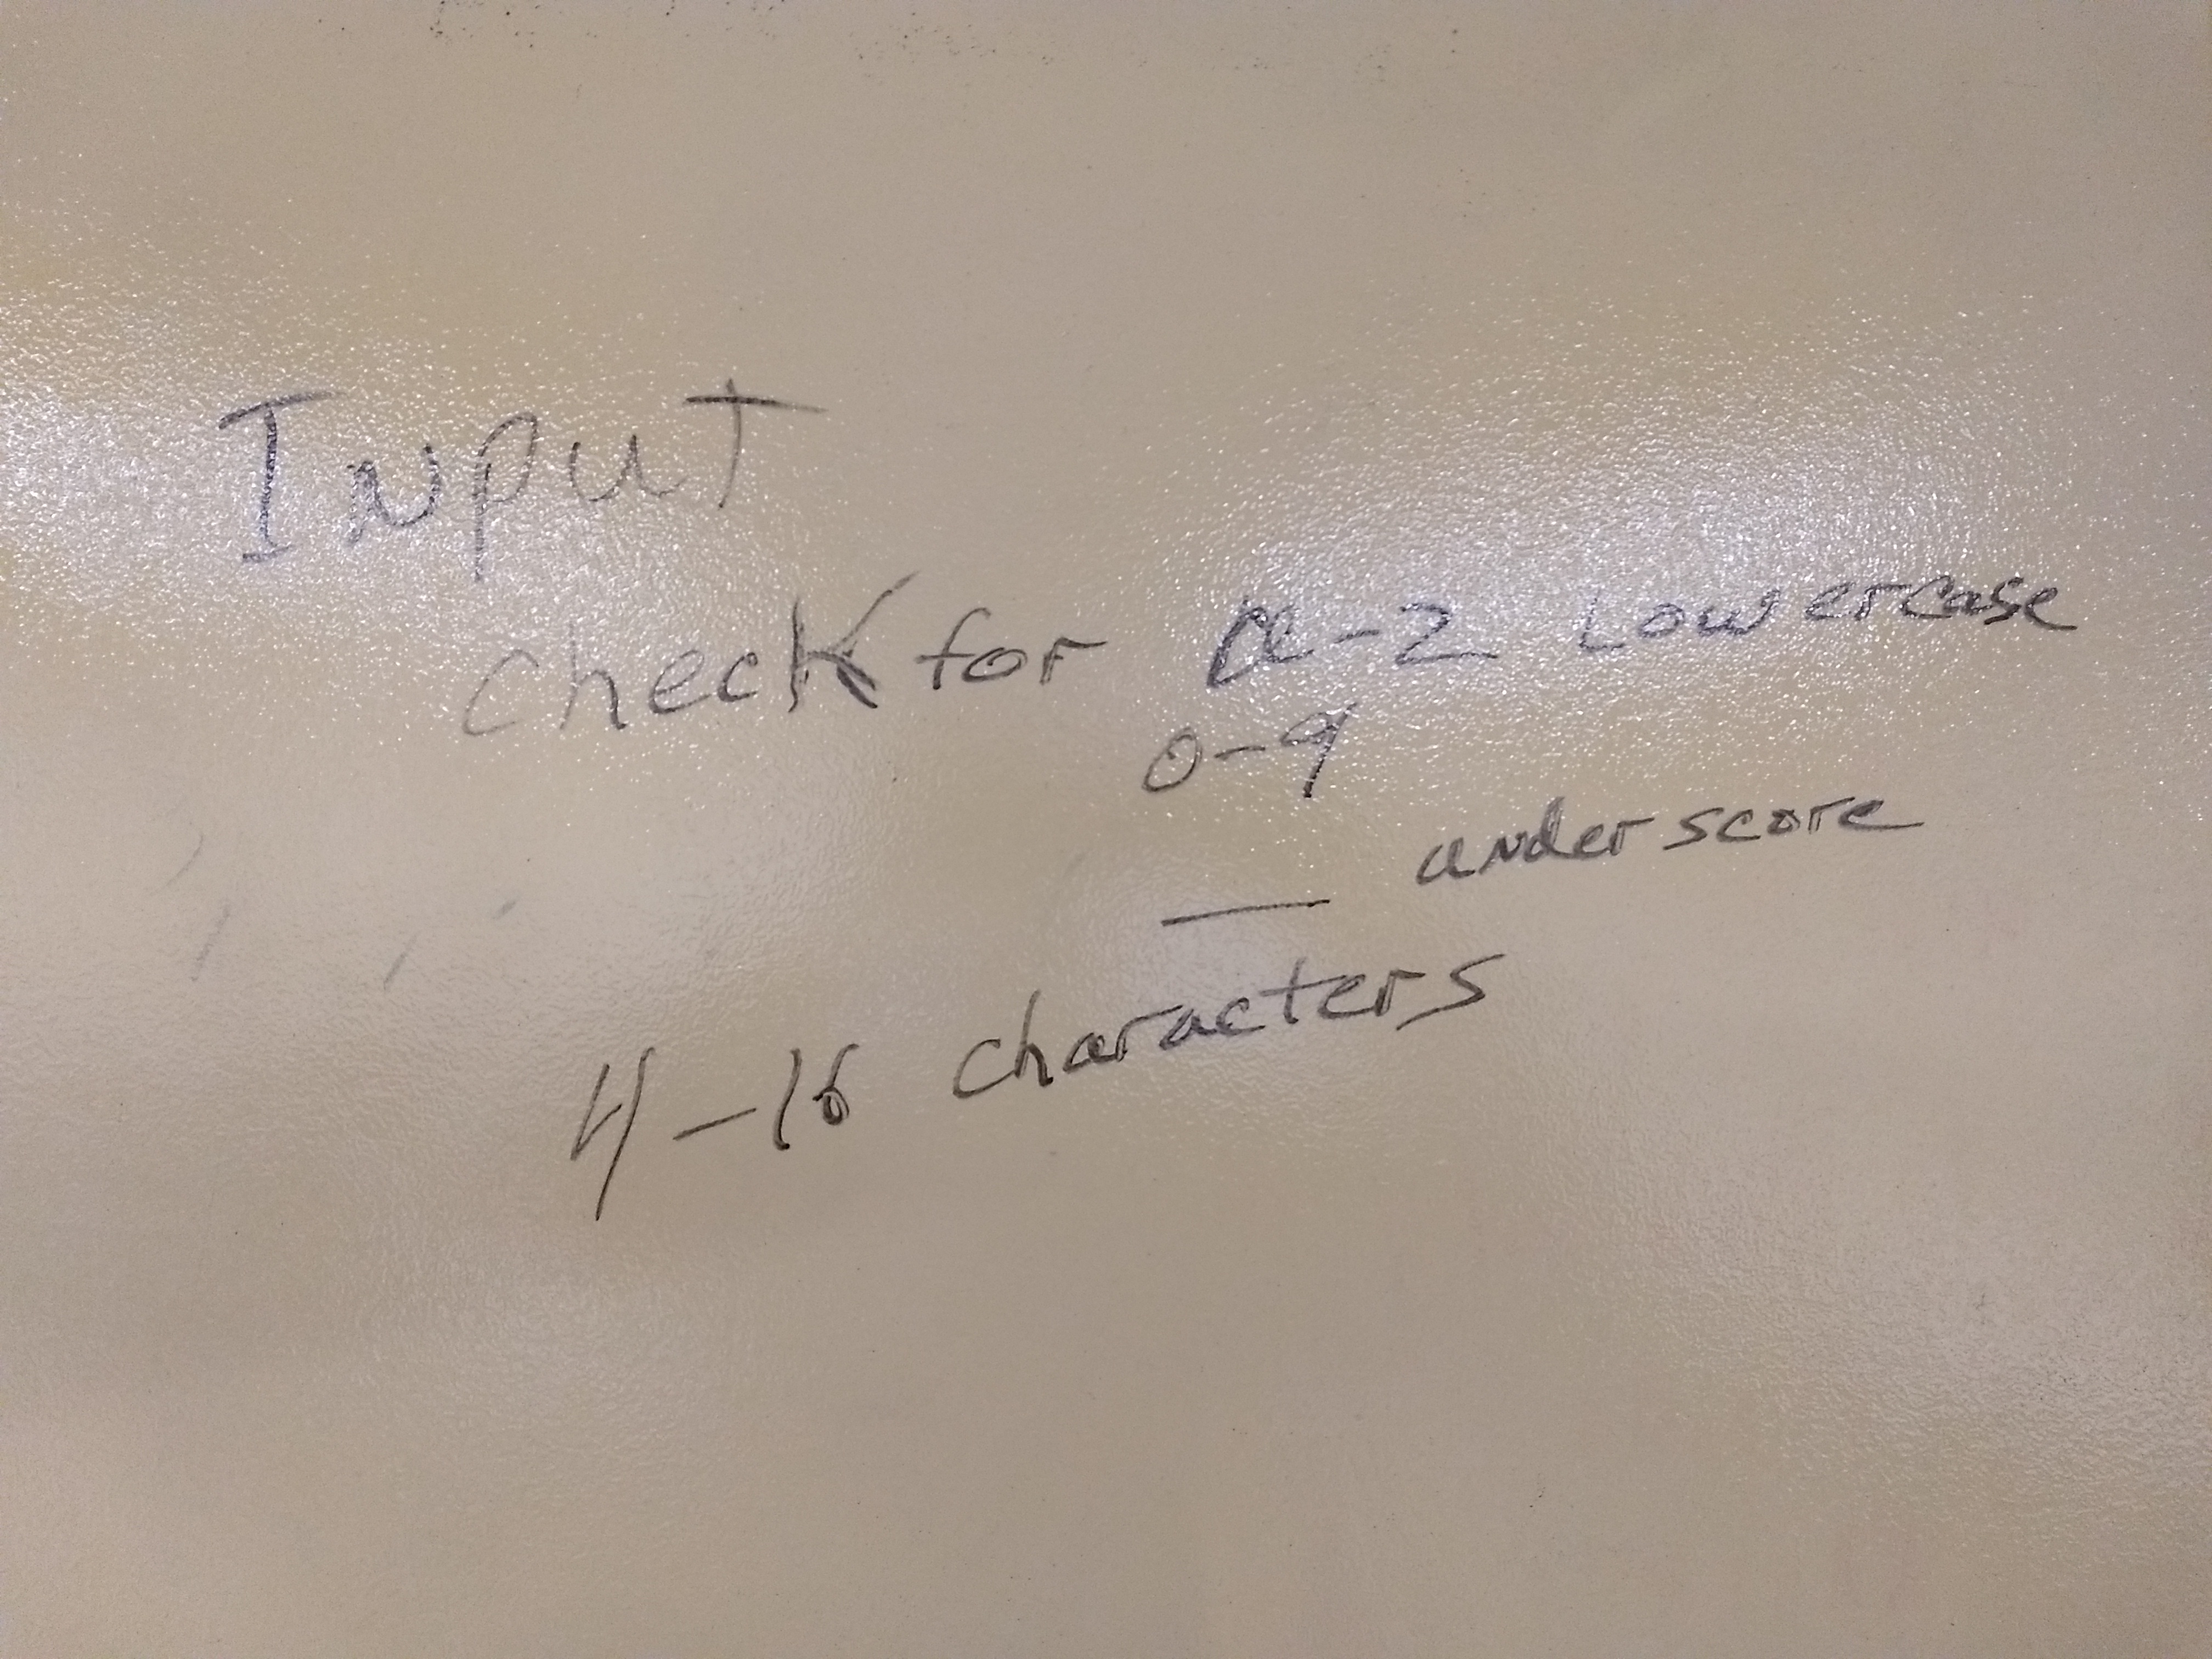 Input
check for a-z lowercase
0-9
_ underscore
4-16 characters